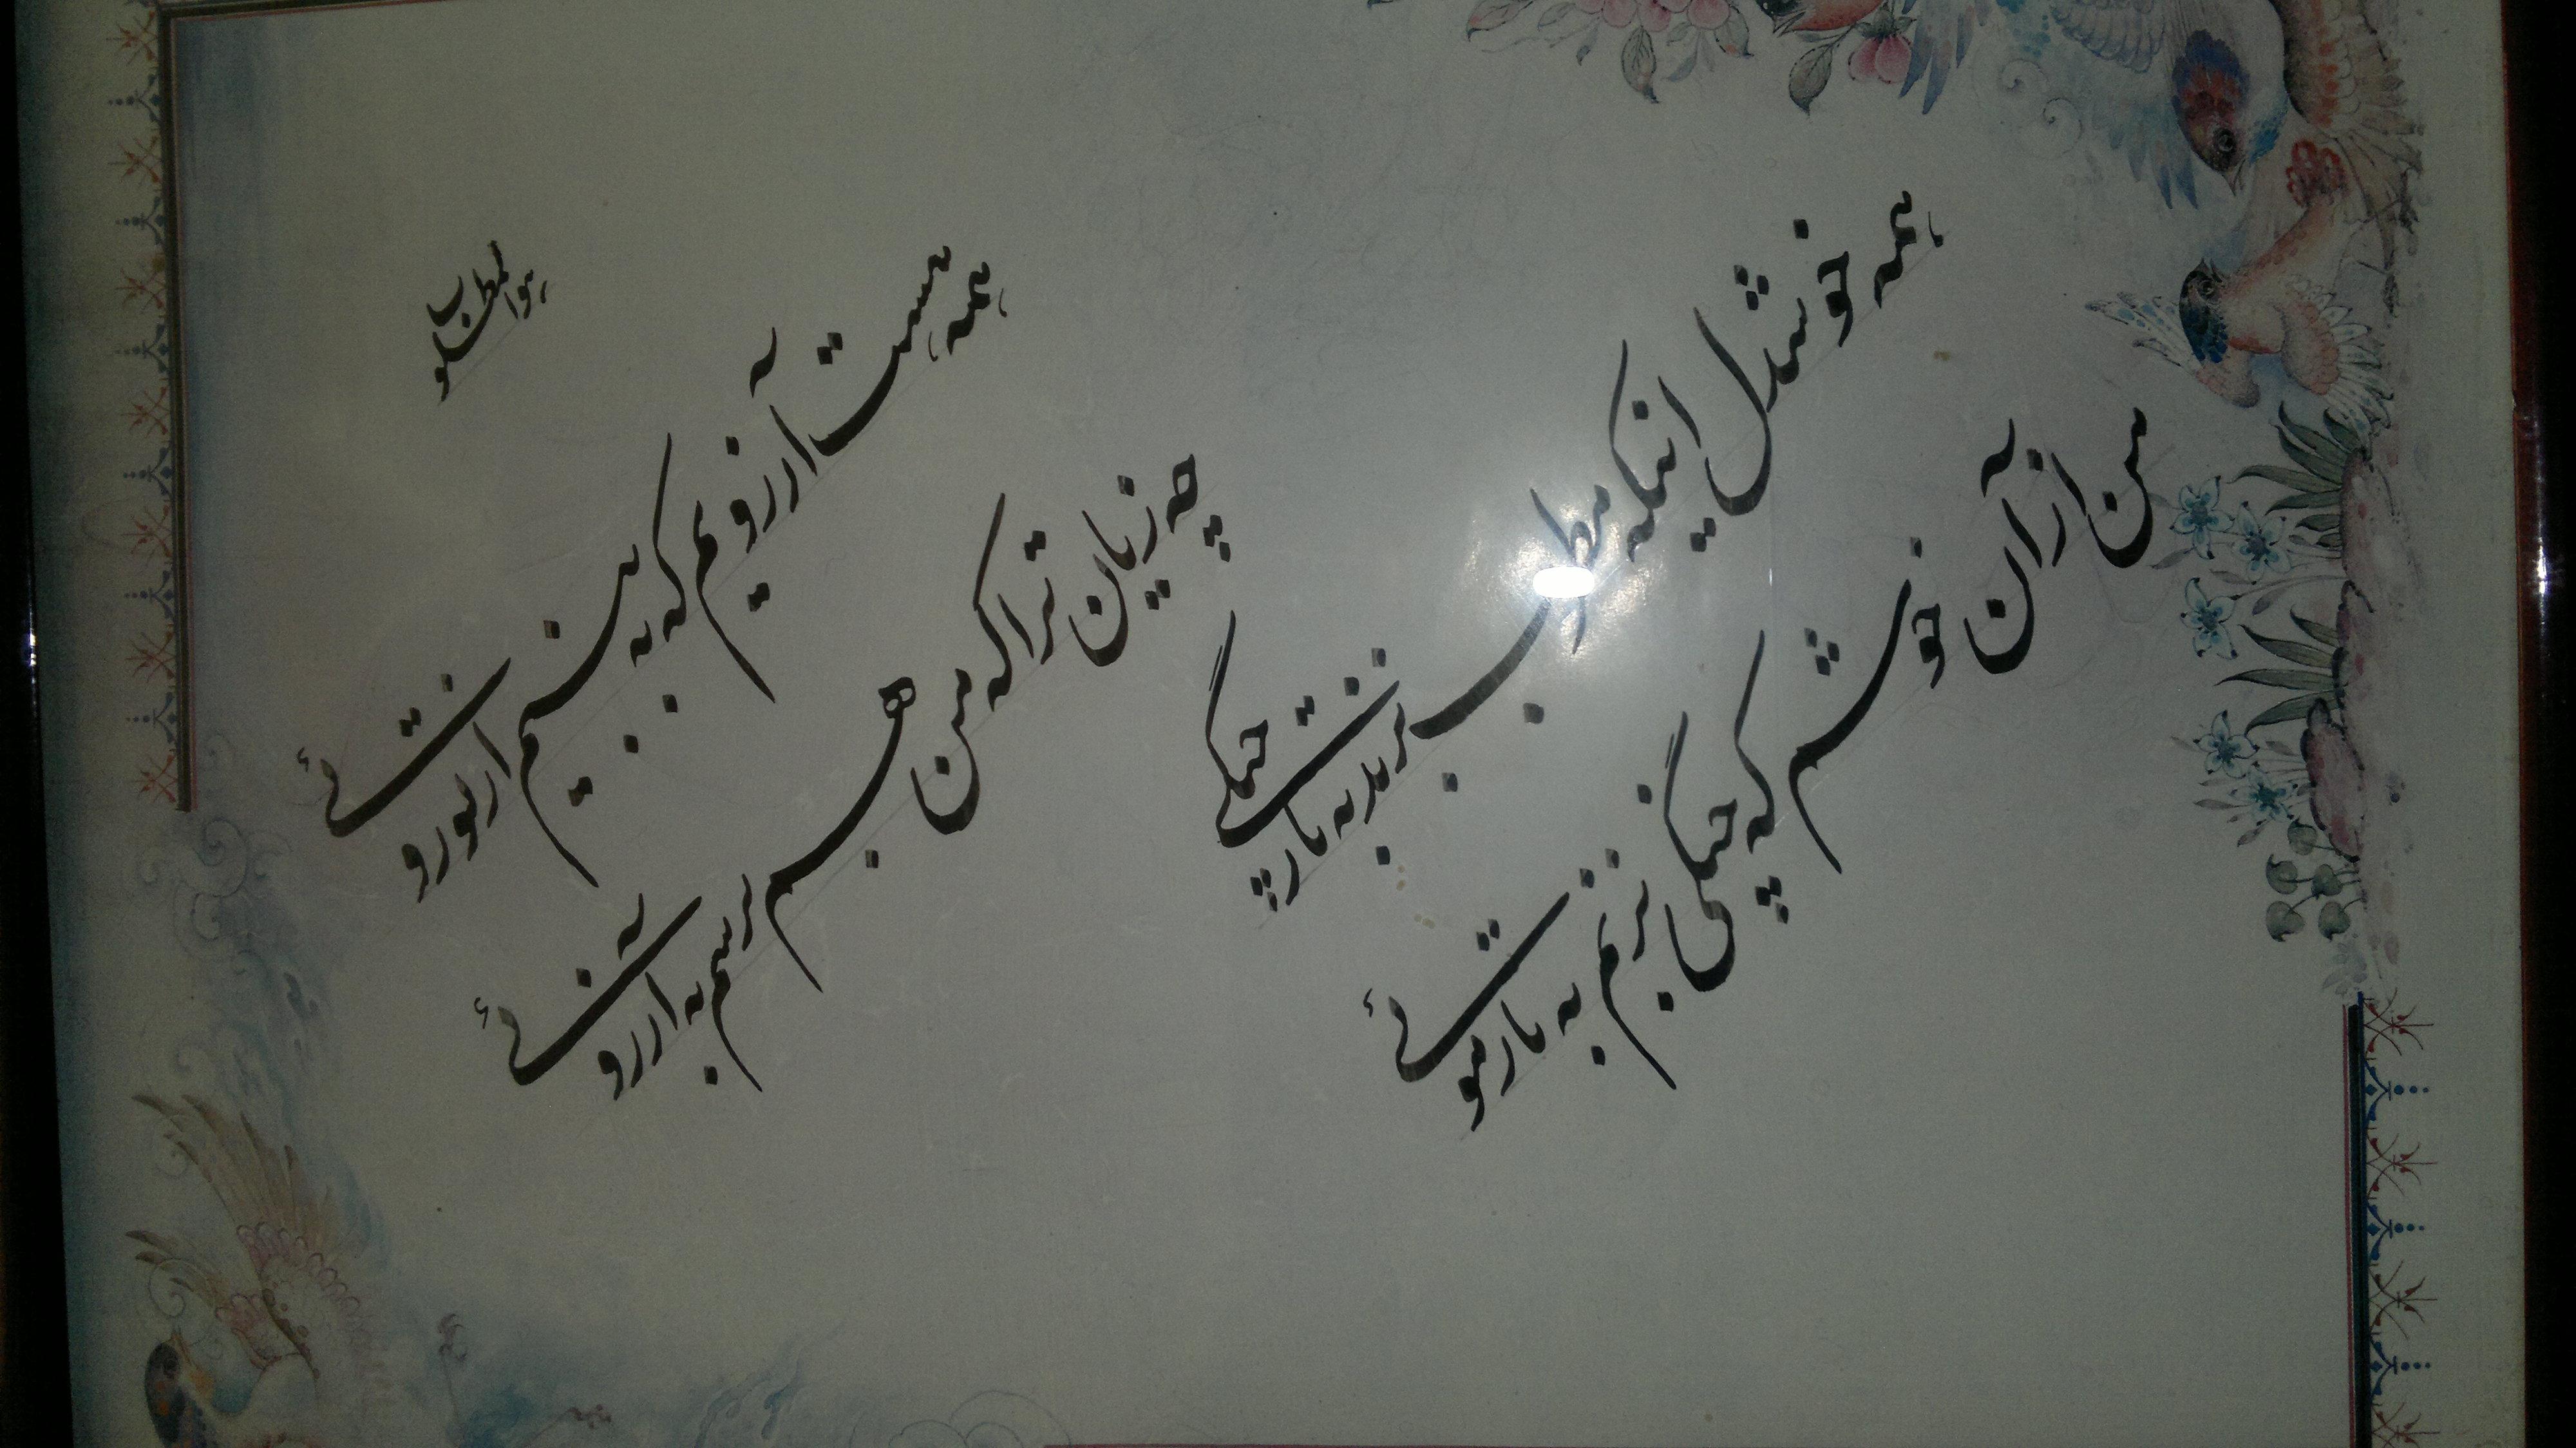 هوالمطلوب
همه هست آرزویم که به بینم از تو روئی
چه زیان ترا که من هم برسم به آرزوئی
همه خوشدل اینکه مطرب بزند به تار چنگی
من از آن خوشم که چنگی بزنم به تار موئی